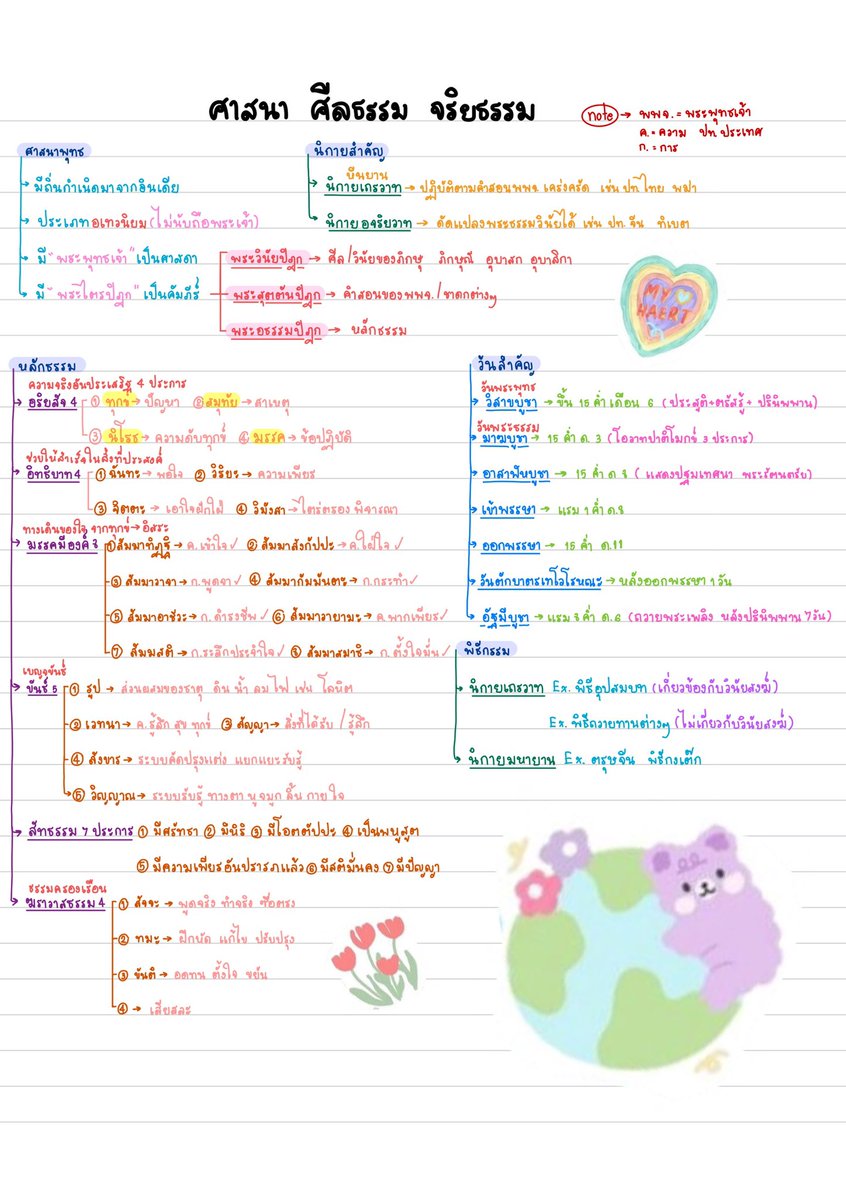 ศาสนา ศีลธรรม จริยธรรม
note → พพจ. = พระพุทธเจ้า
ค. = ความ ปท. ประเทศ
ก. = การ
ศาสนาพุทธ
มีถิ่นกำเนิดมาจากอินเดีย
ประเภท อเทวนิยม (ไม่นับถือพระเจ้า)
มี "พระพุทธเจ้า" เป็นศาสดา
มี "พระไตรปิฎก" เป็นคัมภีร์
พระวินัยปิฎก → ศีล/วินัยของภิกษุ ภิกษุณี อุบาสก อุบาสิกา
พระสุตตันปิฎก → คำสอนของพพจ. / ชาดกต่างๆ
พระอธรรมปิฎก → หลักธรรม
นิกายสำคัญ
หินยาน
นิกายเถรวาท → ปฏิบัติตามคำสอนพพจ. เคร่งครัด เช่น ปท. ไทย พม่า
นิกายอจริยวาท → ดัดแปลงพระธรรมวินัยได้ เช่น ปท. จีน ทิเบต
MY
HAERT
หลักธรรม
ความจริงอันประเสริฐ 4 ประการ
อริยสัจ 4 ① ทุกข์ → ปัญหา ② สมุทัย → สาเหตุ
③ นิโรธ → ความดับทุกข์ ④ มรรค → ข้อปฏิบัติ
ช่วยให้สำเร็จในสิ่งที่ประสงค์
อิทธิบาท 4 ① ฉันทะ → พอใจ ② วิริยะ → ความเพียร
③ จิตตะ → เอาใจฝักใฝ่ ④ วิมังสา → ไตร่ตรอง พิจารณา
ทางเดินของใจ จากทุกข์ → อิสระ
มรรคมีองค์ 8 ① สัมมาทิฏฐิ → ค.เข้าใจ ✓ ② สัมมาสังกัปปะ → ค.ใฝ่ใจ ✓
③ สัมมาวาจา → ก.พูดจา ✓ ④ สัมมากัมมันตะ → ก.กระทำ ✓
⑤ สัมมาอาชีวะ → ก.ดำรงชีพ ✓ ⑥ สัมมาวายามะ → ค.พากเพียร ✓
⑦ สัมมสติ → ก.ระลึกประจำใจ ✓ ⑧ สัมมาสมาธิ → ก.ตั้งใจมั่น ✓
เบญจขันธ์
ขันธ์ 5 ① รูป → ส่วนผสมของธาตุ ดิน น้ำ ลม ไฟ เช่น โลหิต
② เวทนา → ค.รู้สึก สุข ทุกข์ ③ สัญญา → สิ่งที่ได้รับ / รู้สึก
④ สังขาร → ระบบคิดปรุงแต่ง แยกแยะรับรู้
⑤ วิญญาณ → ระบบรับรู้ ทางตา หู จมูก ลิ้น กาย ใจ
สัทธรรม 7 ประการ ① มีศรัทธา ② มีหิริ ③ มีโอตตัปปะ ④ เป็นพหูสูต
⑤ มีความเพียรอันปรารภแล้ว ⑥ มีสติมั่นคง ⑦ มีปัญญา
ธรรมครองเรือน
ฆราวาสธรรม 4 ① สัจจะ → พูดจริง ทำจริง ซื่อตรง
② ทมะ → ฝึกหัด แก้ไข ปรับปรุง
③ ขันติ → อดทน ตั้งใจ ขยัน
④ → เสียสละ
วันสำคัญ
วันพระพุทธ
วิสาขบูชา → ขึ้น 15 ค่ำ เดือน 6 (ประสูติ+ตรัสรู้+ปรินิพพาน)
วันพระธรรม
มาฆบูชา → 15 ค่ำ ด. 3 (โอวาทปาติโมกข์ 3 ประการ)
อาสาฬหบูชา → 15 ค่ำ ด. 8 (แสดงปฐมเทศนา พระรัตนตรัย)
เข้าพรรษา → แรม 1 ค่ำ ด.8
ออกพรรษา → 15 ค่ำ ด.11
วันตักบาตรเทโวโรหณะ → หลังออกพรรษา 1 วัน
อัฐมีบูชา → แรม 8 ค่ำ ด.6 (ถวายพระเพลิง หลังปรินิพพาน 7 วัน)
พิธีกรรม
นิกายเถรวาท Ex. พิธีอุปสมบท (เกี่ยวข้องกับวินัยสงฆ์)
Ex. พิธีถวายทานต่างๆ (ไม่เกี่ยวกับวินัยสงฆ์)
นิกายมหายาน Ex. ตรุษจีน พิธีกงเต๊ก